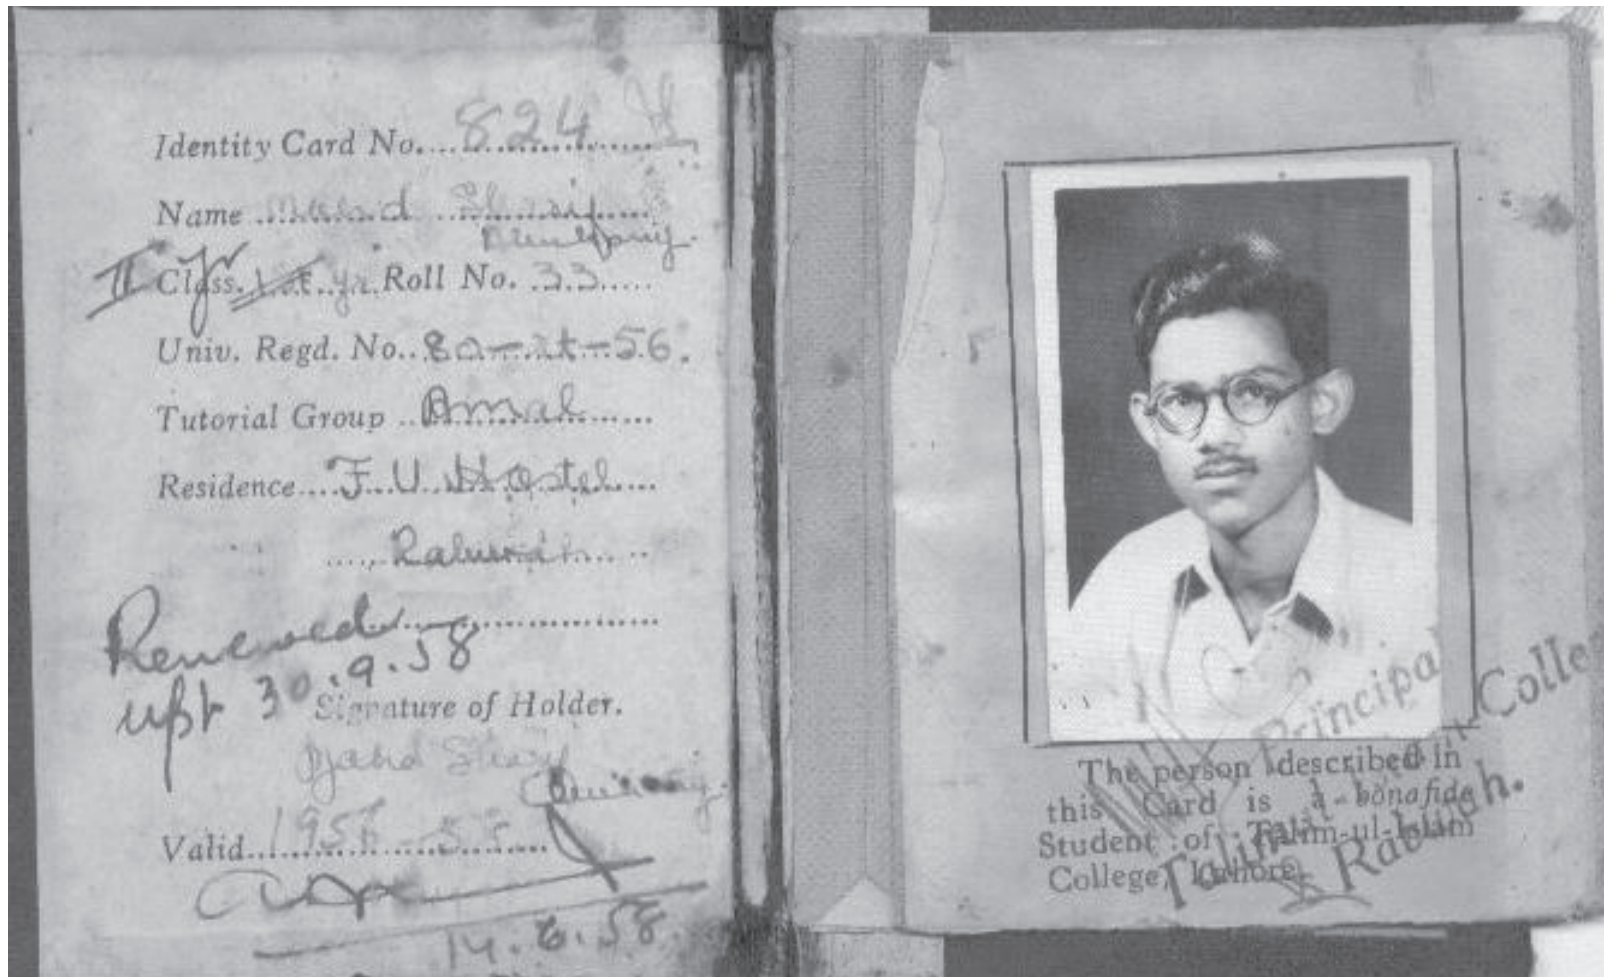 Identity Card No. 824
Name Sharif
II yr Class 1st yr. Roll No. 33
Univ. Regd. No. 80-at-56.
Tutorial Group Amal
Residence F.U. Hostel
Rabwah
Renewed
upt 30.9.58
Signature of Holder.
Valid 1957-58
14.6.58.
Principal
Talim-ul-Islam College
Rabwah.
The person described in
this Card is a bonafide
Student of Talim-ul-Islam
College, Lahore.